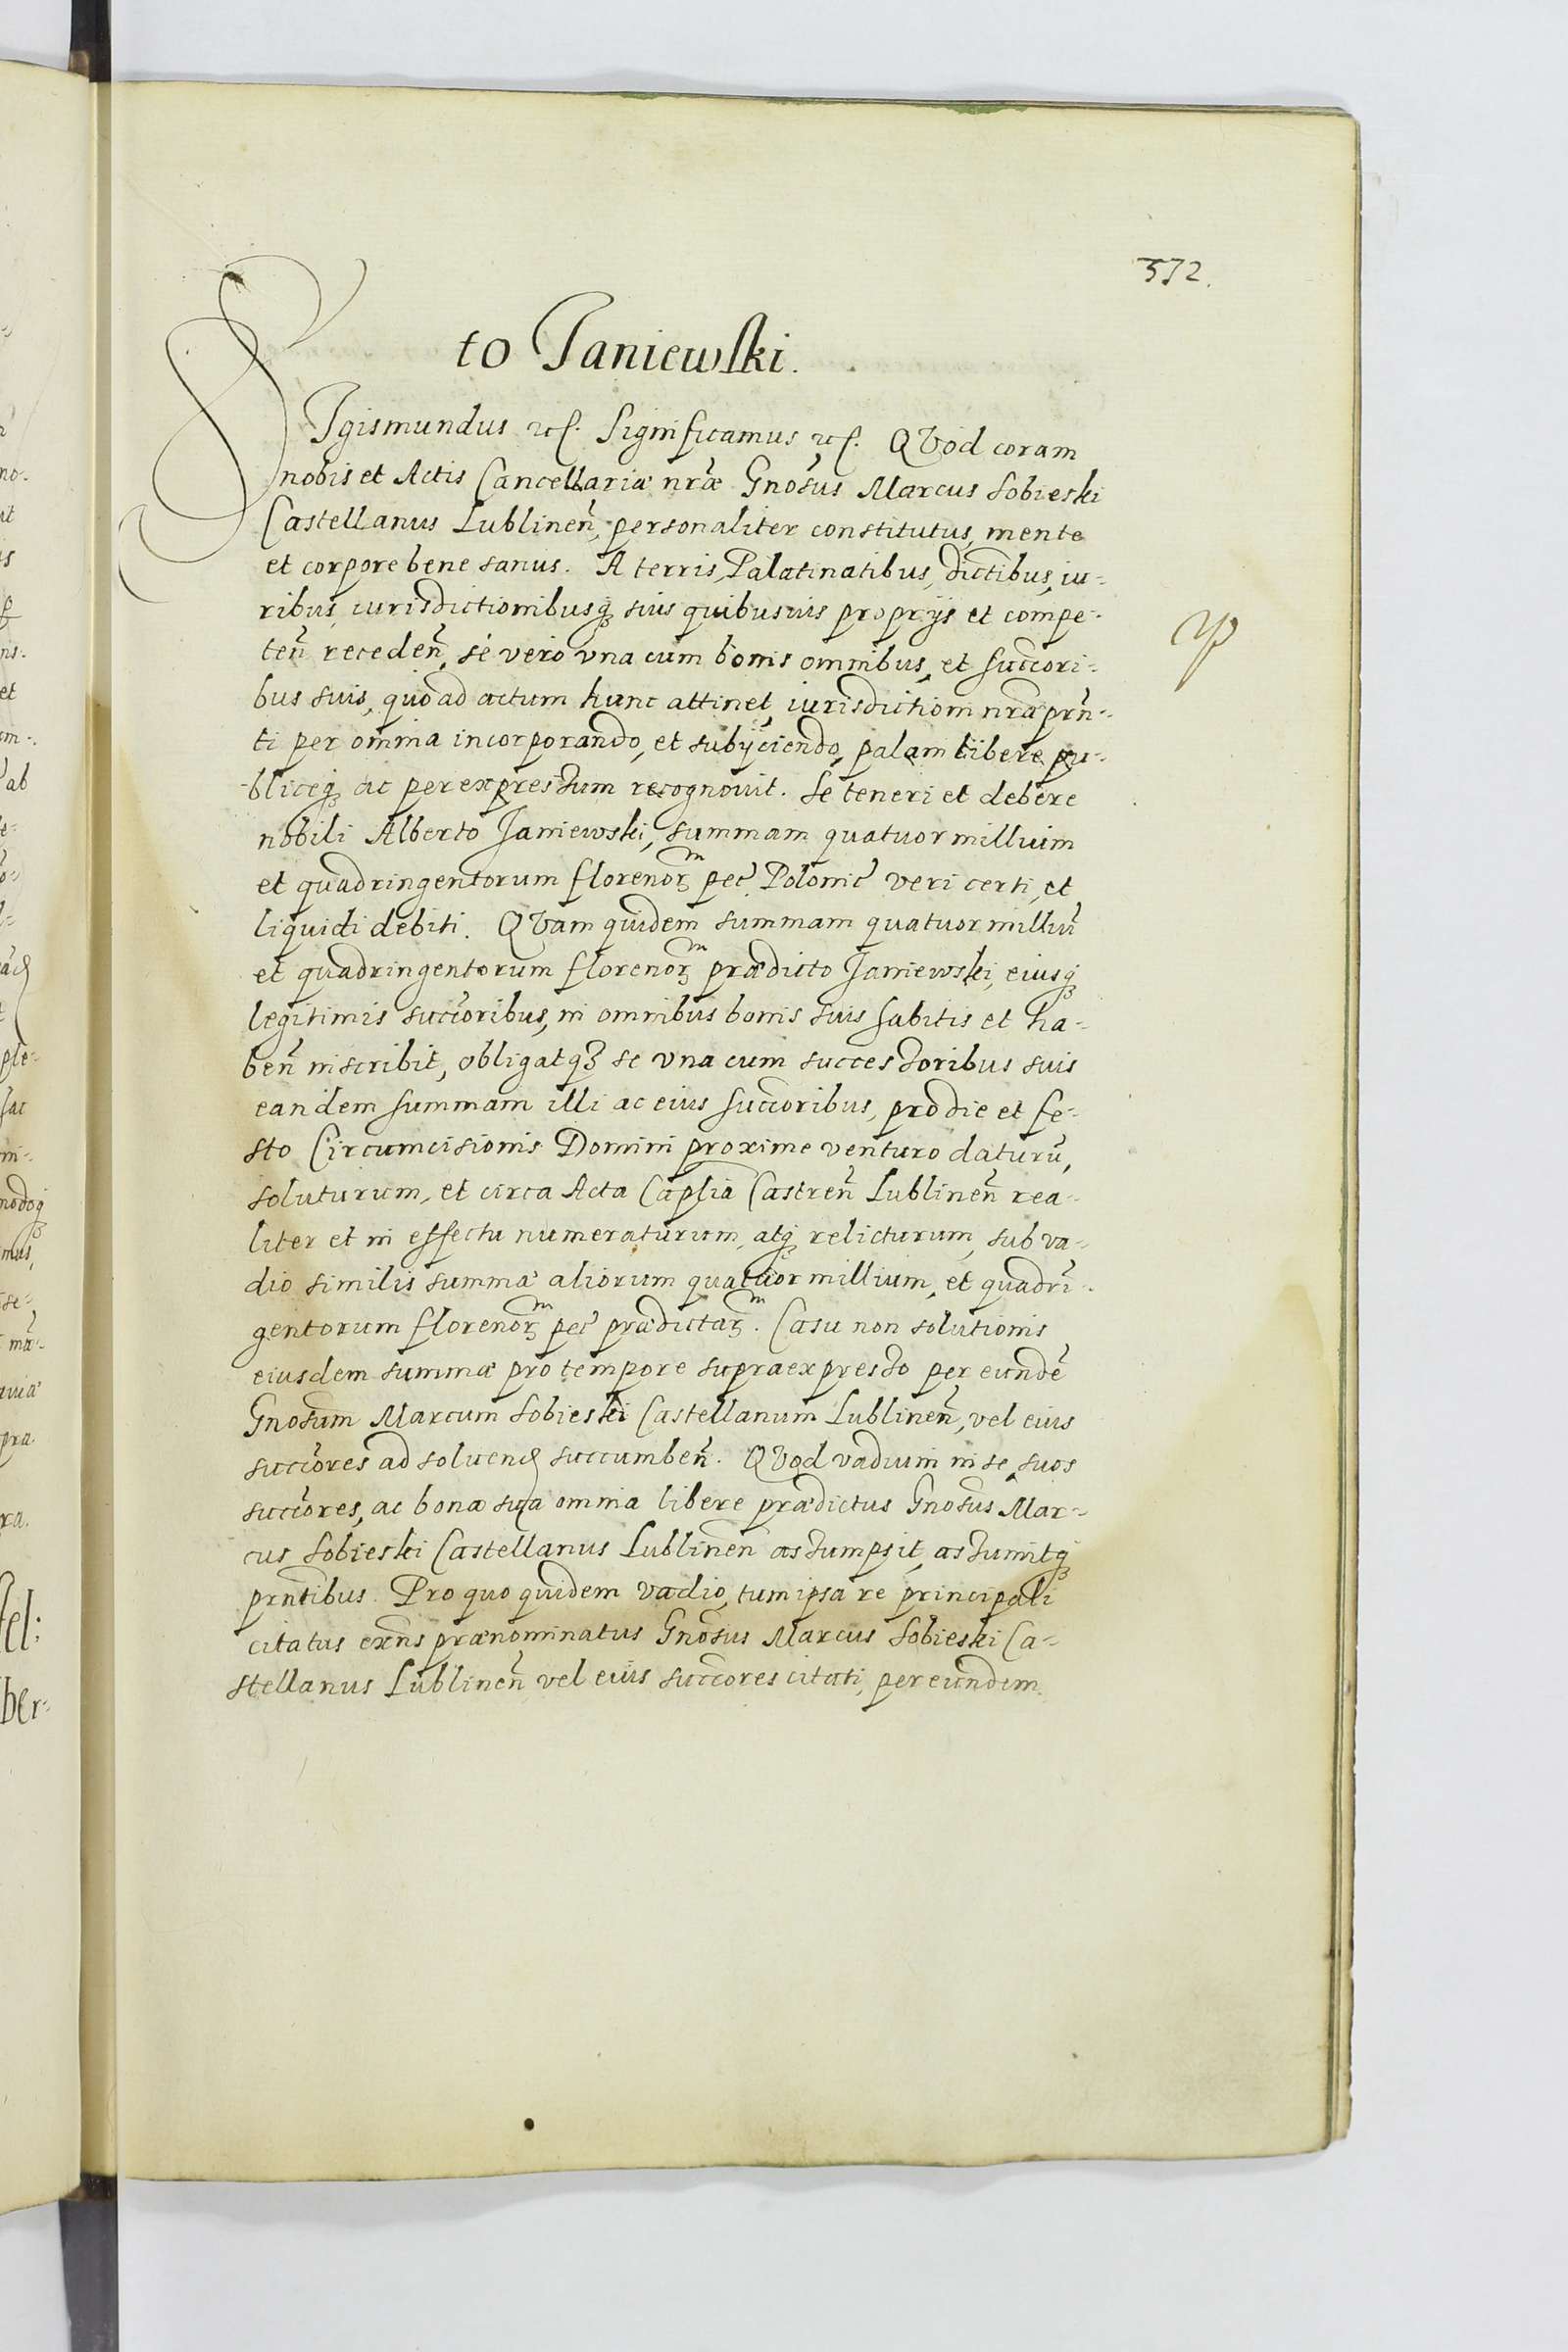 372.
to Janiewski.
SIgismundus etc. Significamus etc. QVod coram
nobis et Actis Cancellariæ nr̃æ Gnosus Marcus Sobieski
Castellanus Lublineñ, personaliter constitutus, mente
et corpore bene sanus. A terris, Palatinatibus, dictibus, iu-
ribus, iurisdictionibusq́ suis quibusuis proprijs et compe-
teñ recedeñ, sé vero vna cum bonis omnibus, et succori-
bus suis, quo ad actum hunc attinet, iurisdictioni nr̃a prñ-
ti per omnia incorporando, et subijciendo, palam libere pu-
bliceq́ ac per expressum recognouit. Sé teneri et debere
nobili Alberto Janiewski, summam quatuor millium
et quadringentorum florenor̃m pec̃ Polonic̃ veri certi, et
liquidi debiti. QVam quidem summam quatuor milliũ
et quadringentorum florenor̃m prædicto Janiewski, eiusq́
legitimis succ̃oribus, in omnibus bonis suis habitis et ha-
beñ inscribit, obligatq́ se vna cum successoribus suis
eandem summam illi ac eius succ̃oribus, pro die et fe-
sto Circumcisionis Domini proxime venturo daturũ,
soluturum, et circa Acta Cap̃lia Castreñ Lublineñ rea-
liter et in effectu numeraturum, atq́ relicturum, sub va-
dio similis summæ aliorum quatuor millium, et quadrĩ-
gentorum florenor̃m pec̃ prædictar̃m. Casu non solutionis
eiusdem summæ pro tempore supraexpresso per eundẽ
Gnosum Marcum Sobieski Castellanum Lublineñ, vel eius
succ̃ores ad soluend succumbeñ. QVod vadium in se, suos
succ̃ores, ac bona sua omnia libere prædictus Gnosus Mar-
cus Sobieski Castellanus Lublineñ assumpsit, assumitq́
prñtibus. Pro quo quidem vadio, tum ipsa re principali
citatus exñs prænominatus Gnosus Marcus Sobieski Ca-
stellanus Lublineñ vel eius succ̃ores citati, per eundem